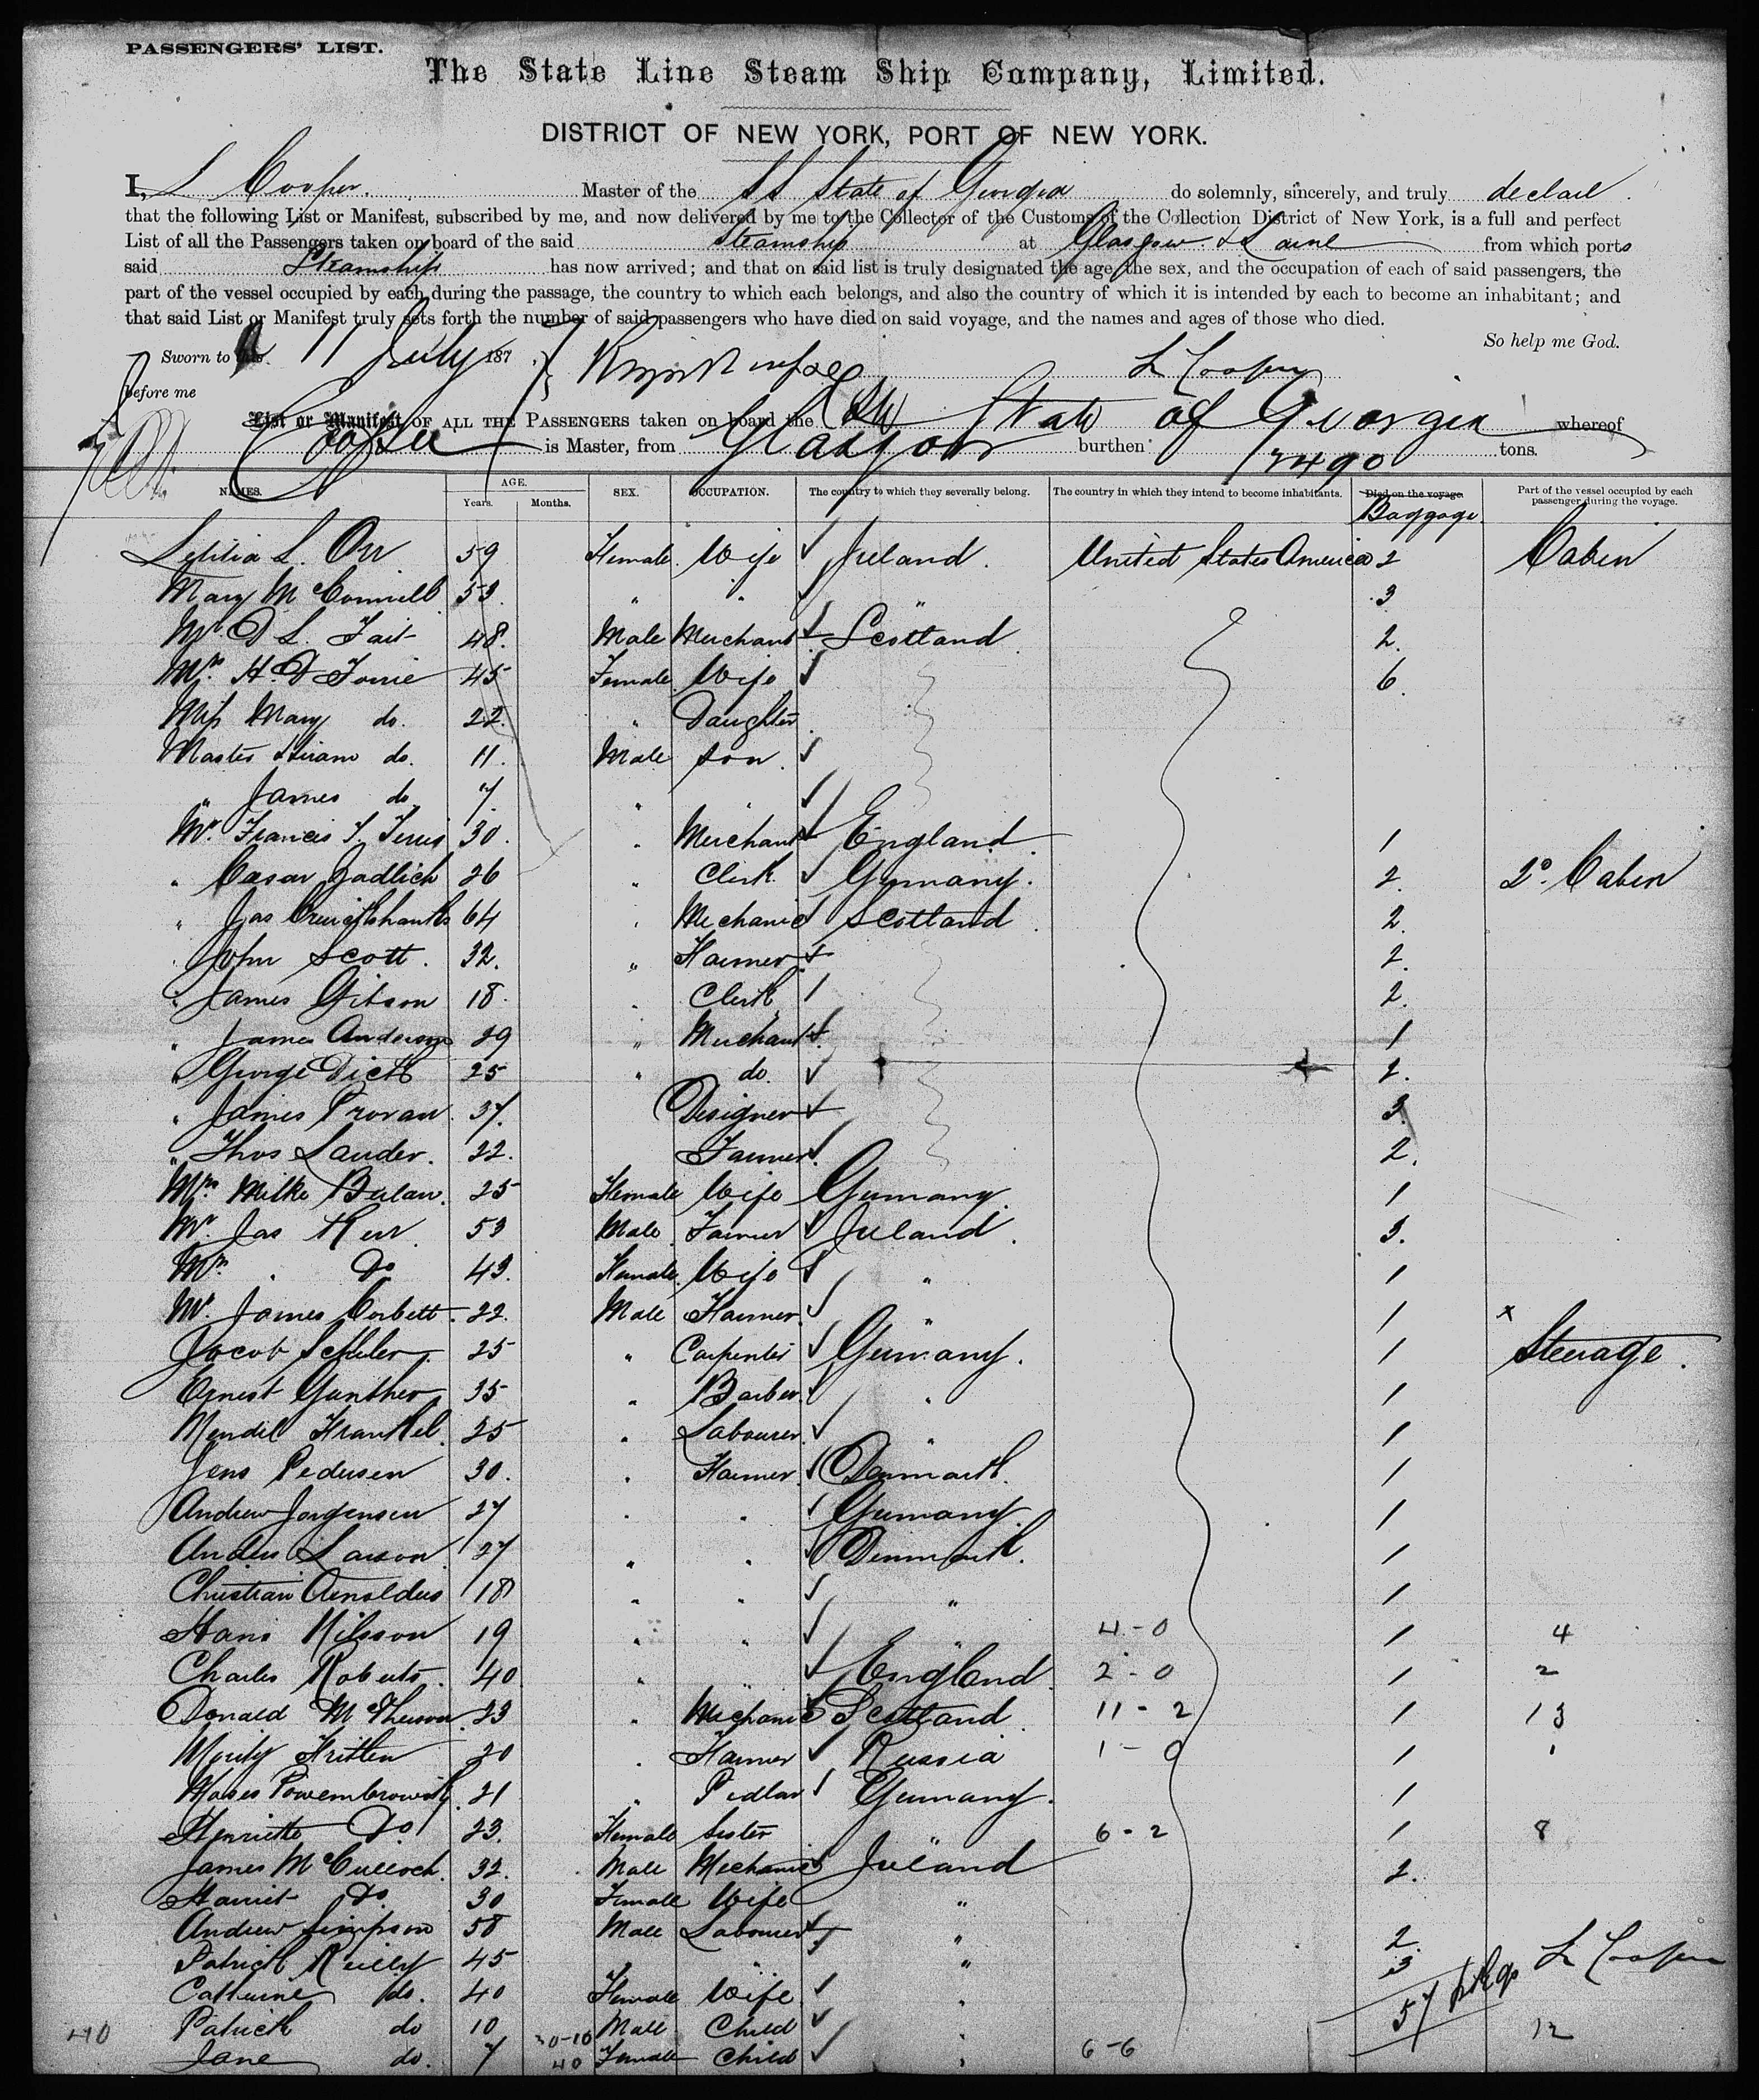 PASSENGERS' LIST.
The State Line Steam Ship Company, Limited.
DISTRICT OF NEW YORK, PORT OF NEW YORK.
I, L Cooper. Master of the SS State of Georgia do solemnly, sincerely, and truly declare
that the following List or Manifest, subscribed by me, and now delivered by me to the Collector of the Customs of the Collection District of New York, is a full and perfect
List of all the Passengers taken on board of the said Steamship at Glasgow & Larne from which ports
said Steamship has now arrived; and that on said list is truly designated the age, the sex, and the occupation of each of said passengers, the
part of the vessel occupied by each during the passage, the country to which each belongs, and also the country of which it is intended by each to become an inhabitant; and
that said List or Manifest truly sets forth the number of said passengers who have died on said voyage, and the names and ages of those who died.
So help me God.
Sworn to this 11 July 187
before me L Cooper
List or Manifest OF ALL THE PASSENGERS taken on board the SS State of Georgia whereof
Cooper is Master, from Glasgow burthen 2490 tons.
NAMES. AGE. Years. Months. SEX. OCCUPATION. The country to which they severally belong. The country in which they intend to become inhabitants. Died on the voyage. Baggage. Part of the vessel occupied by each passenger during the voyage.
Letitia L. Orr 59 Female Wife Ireland. United States America 2 Cabin
Mary McConnell 53 " " " 3
Mr D L. Tait 48. Male Merchant Scotland 2.
Mrs. H. D 45 Female Wife 6.
Miss Mary do. 22. " Daughter
Master Hiram do. 11. Male son.
" James do 7. " "
Mr. Francis 30. " Merchant England 1
" 26 " Clerk Germany. 2. 2º. Cabin
" Jas Cruickshanks 64 " Mechanic Scotland 2.
" John Scott. 32. " Farmer 2.
" James Gibson 18. " Clerk 2.
" James Anderson 29 " Merchant 1
" George Dick 25 " do. 2.
" James Provan 37. Designer 3.
" Thos Lauder. 22. Farmer. 2.
Mrs. 25 Female Wife Germany. 1
Mr. Jas Kerr 53 Male Farmer Ireland. 3.
Mrs. " Do 43. Female Wife " 1
Mr. James Corbett. 22. Male Farmer. " 1 x
Jacob 25 " Carpenter Germany. 1 Steerage.
Ernest Gunther 35 " Barber " 1
Mendel Frankel 25 " Labourer " 1
Jens Pedersen 30. " Farmer Denmark. 1
Andrew Jorgensen 27 " " Germany. 1
Anders Larson 27 " " Denmark. 1
Christian Arnoldus 18 " " " 1
Hans Nilsson 19 " " " 4-0 1 4
Charles Roberts. 40 " " England 2-0 1 2
Donald 23 " Mechanic Scotland 11-2 1 13
20 " Farmer Russia 1-0 1 1
Moses 21 " Pedlar Germany. 1
Henriette Do 23. Female Sister " 6-2 1 8
James McCulloch. 32. Male Mechanic Ireland 2.
Harriet Do. 30 Female Wife "
Andrew Simpson 58 Male Labourer " 2.
Patrick Reilly 45 " " 3 L Cooper
Catherine do. 40 Female Wife " 57 pkgs
Patrick do 10 30-10 Male Child 12
Jane do. 7 40 Female Child " 6-6
40